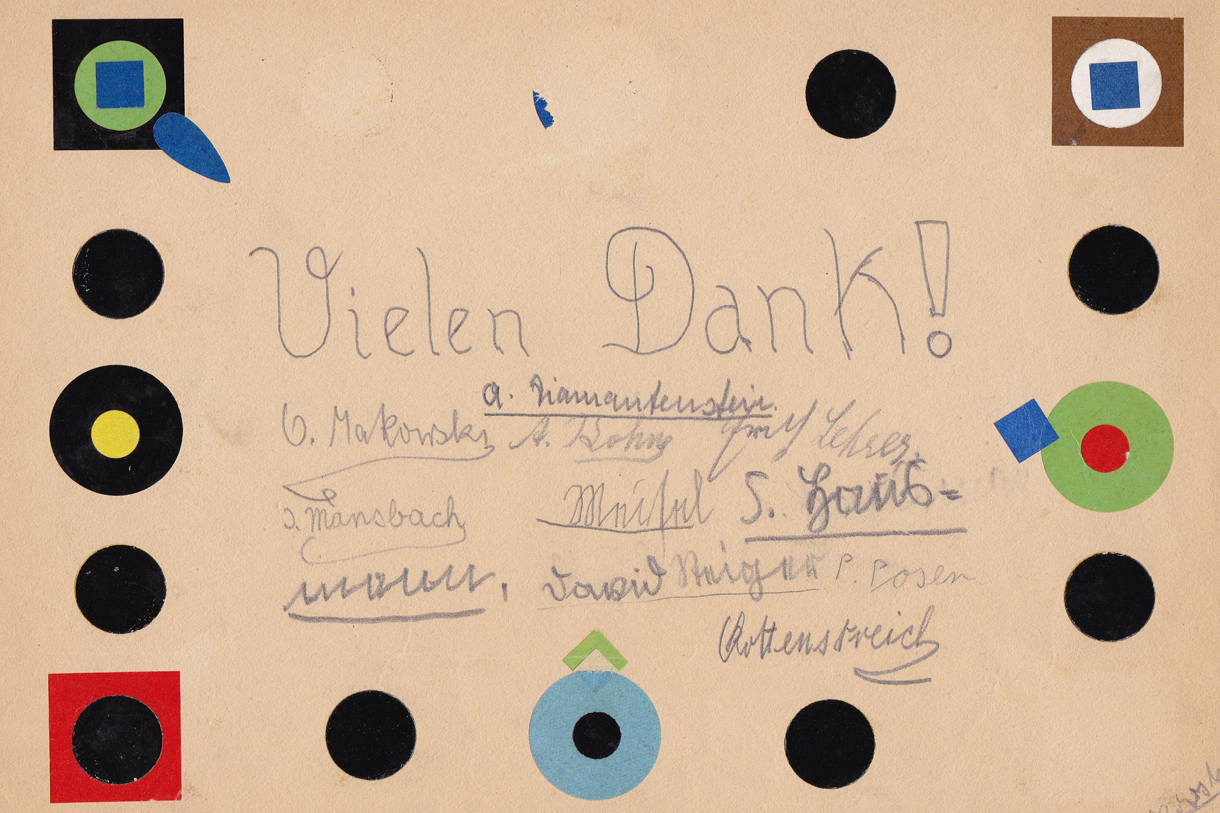 Vielen Dank!
A. Diamantenstein.
O. Makowski A. Bohne Fritz Lehrer.
J. Mansbach Meisel S. Haus-
mann, David Steiger P. Posen
Rottenstreich